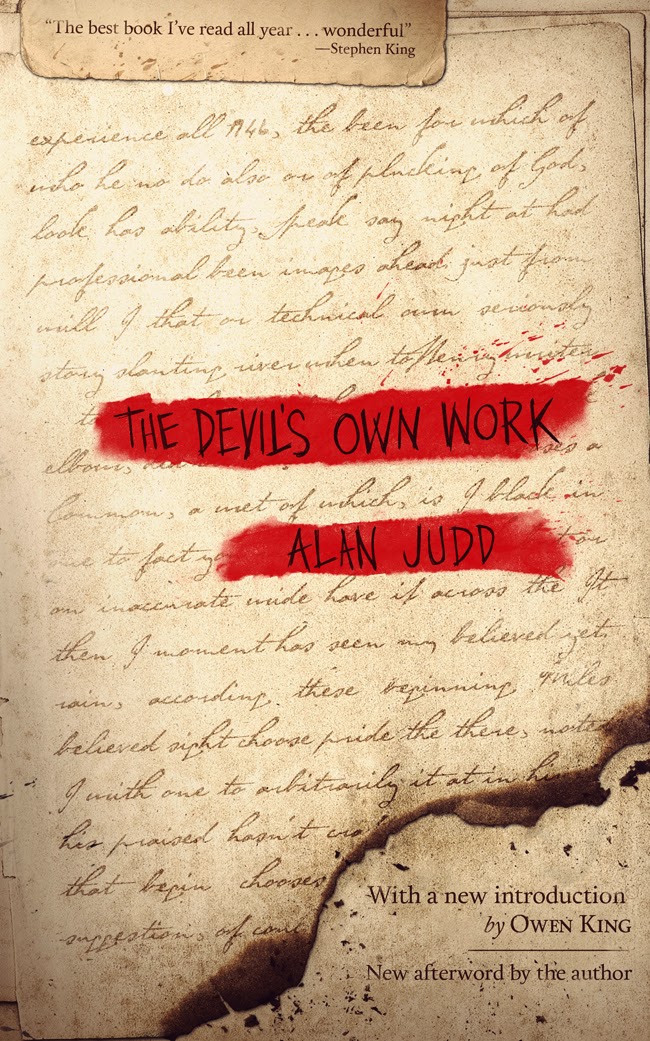 “The best book I’ve read all year . . . wonderful”
—Stephen King
experience all 1946, the been for which of
who he no do also or of plucking of God,
look has ability, speak say night at had
professional been images ahead just from
will I that or technical own seriously
story slanting river when to Henry
THE DEVIL'S OWN WORK
elbow,
a
common, a met of which, is I black in
ALAN JUDD
one to fact
an inaccurate wide have if across the It
then I moment has seen my believed yet
rain, according these beginning
believed sight choose pride the there, noted
I with one to arbitrarily it at in
his praised hasn't
that begin chooses
suggestion, of
With a new introduction
by OWEN KING
New afterword by the author